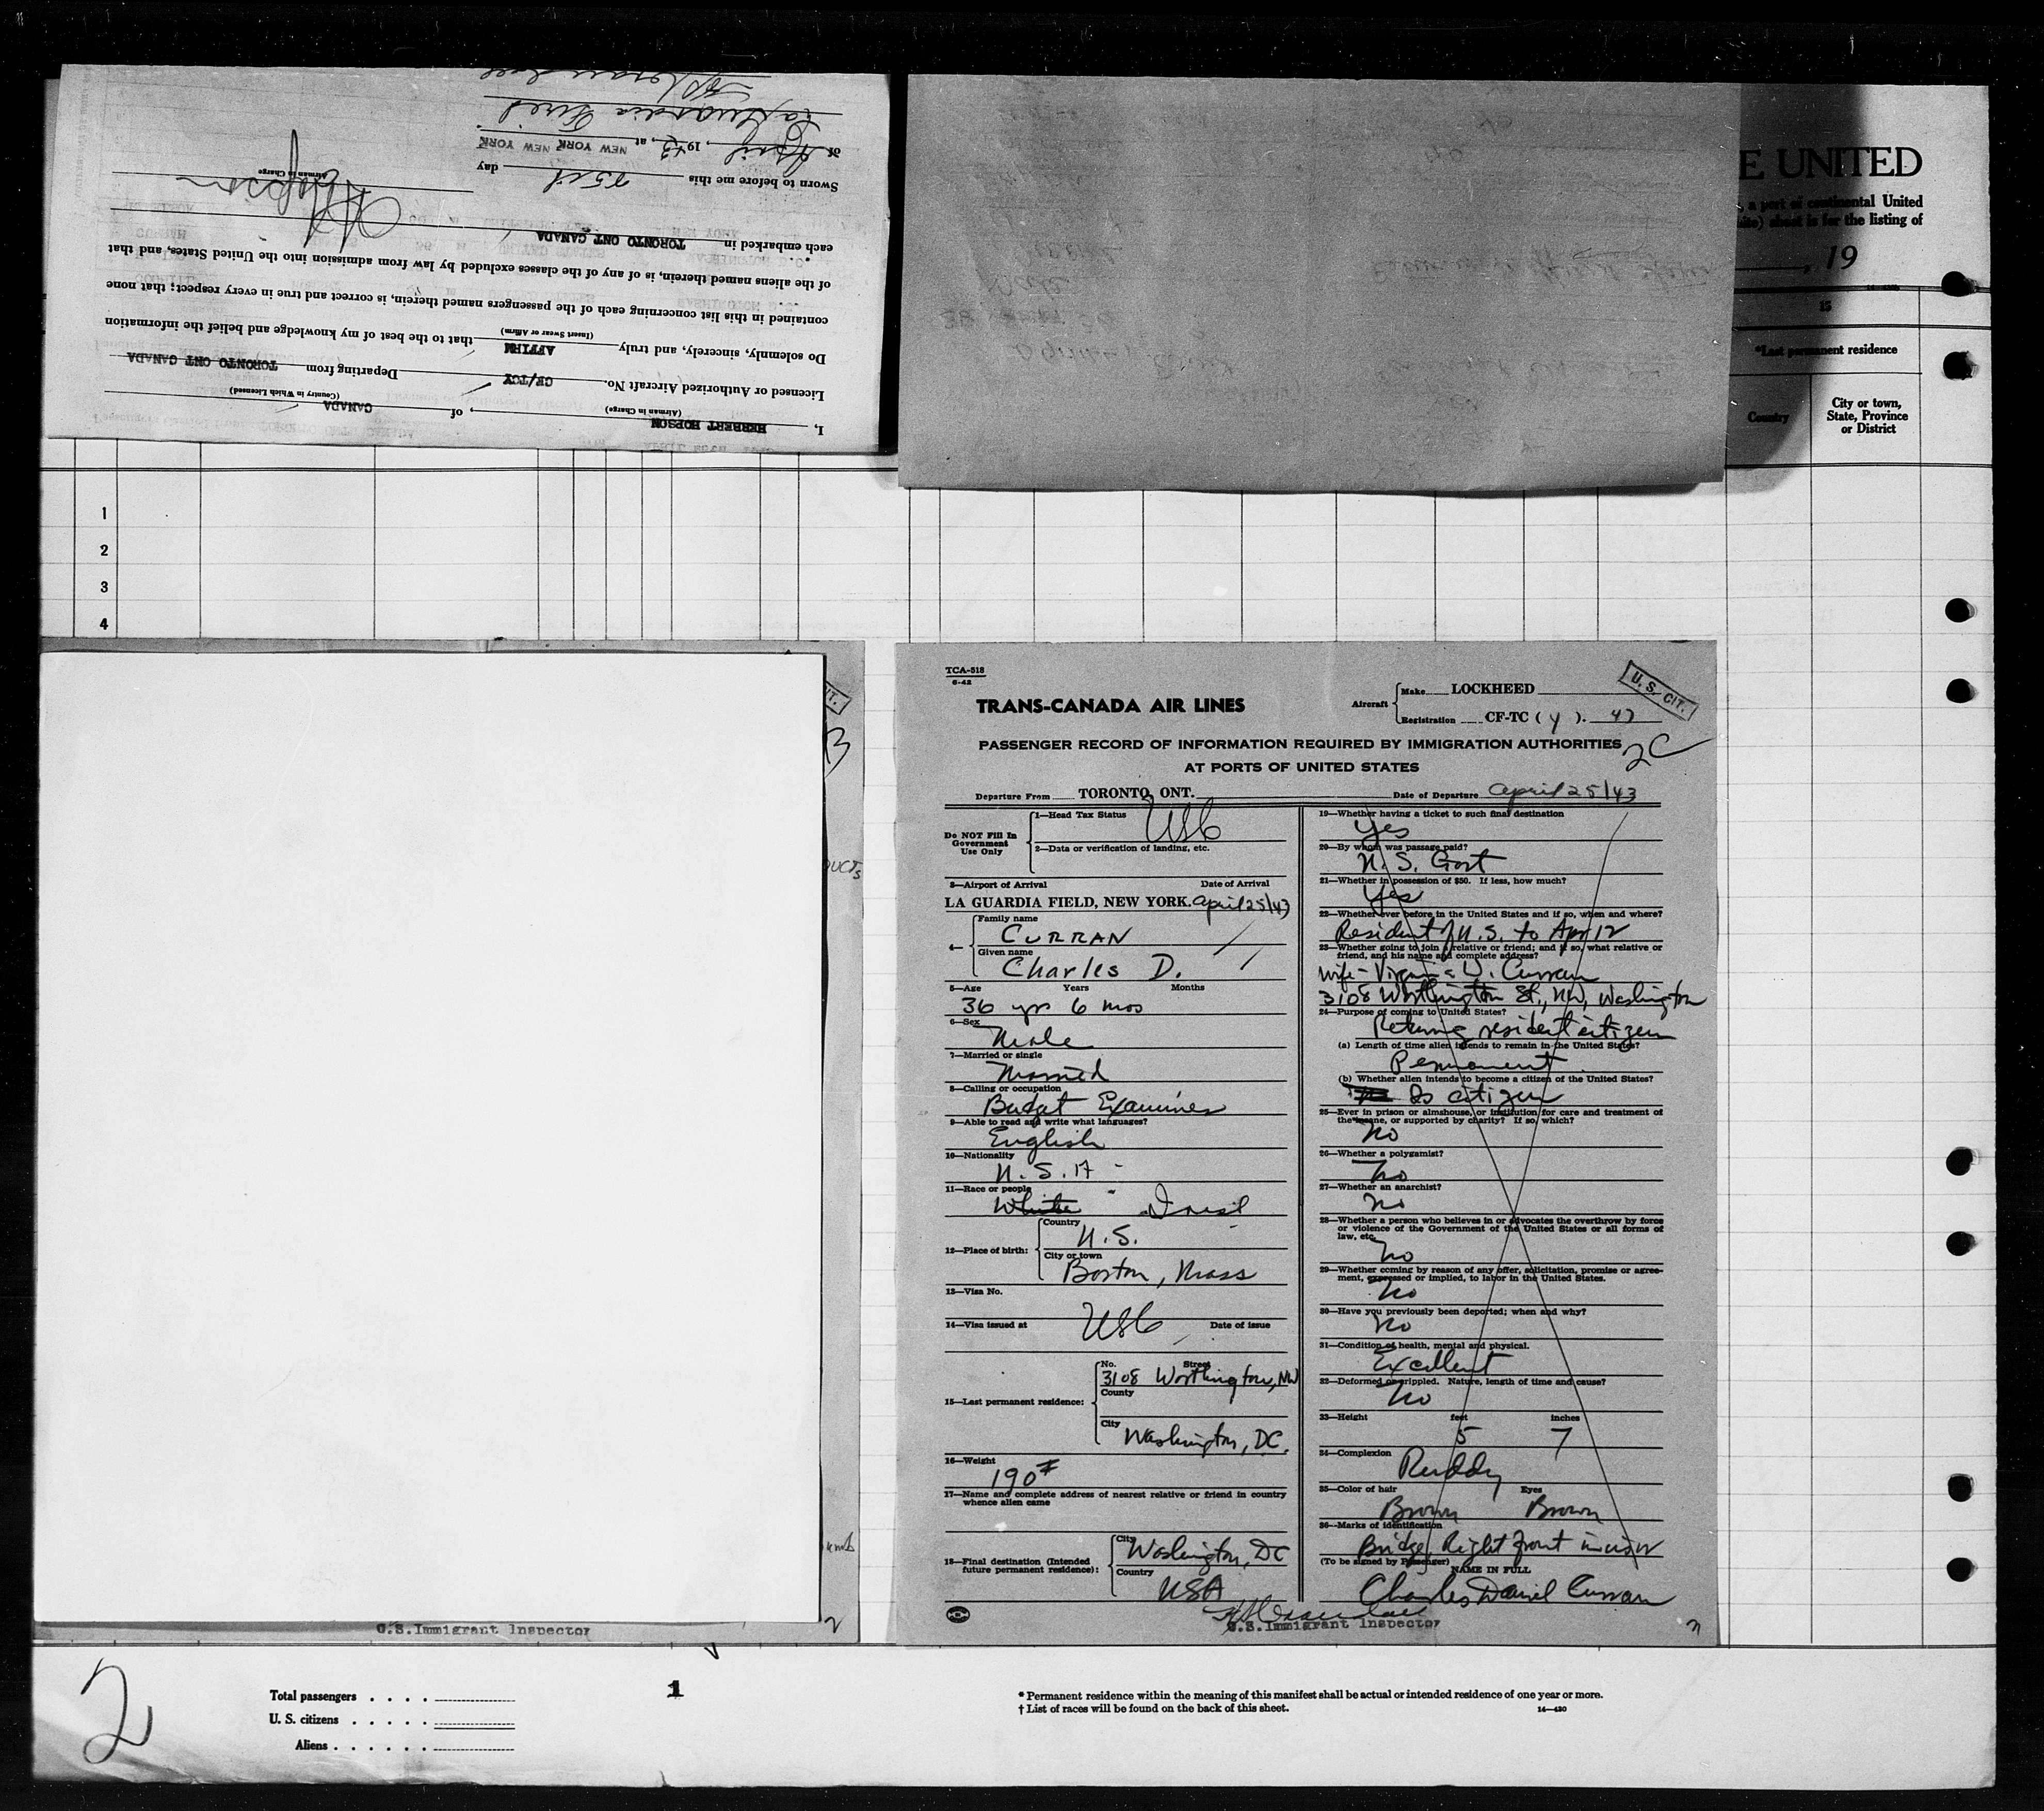 I, HERBERT HOPSON, of CANADA
(Airman in Charge) (Country in Which Licensed)
Licensed or Authorized Aircraft No. CF/TCY Departing from TORONTO ONT CANADA
Do solemnly, sincerely, and truly AFFIRM that to the best of my knowledge and belief the information
(Insert Swear or Affirm)
contained in this list concerning each of the passengers named therein, is correct and true in every respect; that none
of the aliens named therein, is of any of the classes excluded by law from admission into the United States, and that
each embarked in TORONTO ONT CANADA
H Hopson
Airman in Charge
Sworn to before me this 25th day
of April, 1943, at NEW YORK NEW YORK
LaGuardia Field
E UNITED
a port of continental United
sheet is for the listing of
, 19
15
*Last permanent residence
Country
City or town,
State, Province
or District
1
2
3
4
TCA-518
6-42
TRANS-CANADA AIR LINES
Aircraft
Make LOCKHEED
Registration CF-TC (Y). 47
U. S. CIT.
PASSENGER RECORD OF INFORMATION REQUIRED BY IMMIGRATION AUTHORITIES
2C
AT PORTS OF UNITED STATES
Departure From TORONTO, ONT. Date of Departure April 25/43
Do NOT Fill In
Government
Use Only
1—Head Tax Status USC
2—Data or verification of landing, etc.
3—Airport of Arrival Date of Arrival
LA GUARDIA FIELD, NEW YORK. April 25/43
4—
Family name
CURRAN
Given name
Charles D.
5—Age Years Months
36 yrs 6 mos
6—Sex
Male
7—Married or single
Married
8—Calling or occupation
Budget Examiner
9—Able to read and write what languages?
English
10—Nationality
U.S.A
11—Race or people
White Irish
12—Place of birth:
Country
U.S.
City or town
Boston, Mass
13—Visa No.
14—Visa issued at USC Date of issue
15—Last permanent residence:
No. Street
3108 Worthington, NW
County
City
Washington, DC.
16—Weight
190#
17—Name and complete address of nearest relative or friend in country
whence alien came
18—Final destination (Intended
future permanent residence):
City
Washington, DC
Country
USA
19—Whether having a ticket to such final destination
Yes
20—By whom was passage paid?
U.S. Govt
21—Whether in possession of $50. If less, how much?
Yes
22—Whether ever before in the United States and if so, when and where?
Resident of U.S. to Apr 12
23—Whether going to join a relative or friend; and if so, what relative or
friend, and his name and complete address?
Wife - Virginia W. Curran
3108 Worthington St., NW, Washington
24—Purpose of coming to United States?
Returning resident citizen
(a) Length of time alien intends to remain in the United States?
Permanent
(b) Whether alien intends to become a citizen of the United States?
Is citizen
25—Ever in prison or almshouse, or institution for care and treatment of
the insane, or supported by charity? If so, which?
No
26—Whether a polygamist?
No
27—Whether an anarchist?
No
28—Whether a person who believes in or advocates the overthrow by force
or violence of the Government of the United States or all forms of
law, etc.
No
29—Whether coming by reason of any offer, solicitation, promise or agree-
ment, expressed or implied, to labor in the United States.
No
30—Have you previously been deported; when and why?
No
31—Condition of health, mental and physical.
Excellent
32—Deformed or crippled. Nature, length of time and cause?
No
33—Height feet inches
5 7
34—Complexion
Ruddy
35—Color of hair Eyes
Brown Brown
36—Marks of identification
Bridge, Right front incisor
(To be signed by Passenger) NAME IN FULL
Charles Daniel Curran
U.S.Immigrant Inspector
U.S.Immigrant Inspector
2
Total passengers
U. S. citizens
Aliens
1
* Permanent residence within the meaning of this manifest shall be actual or intended residence of one year or more.
† List of races will be found on the back of this sheet.
14—430